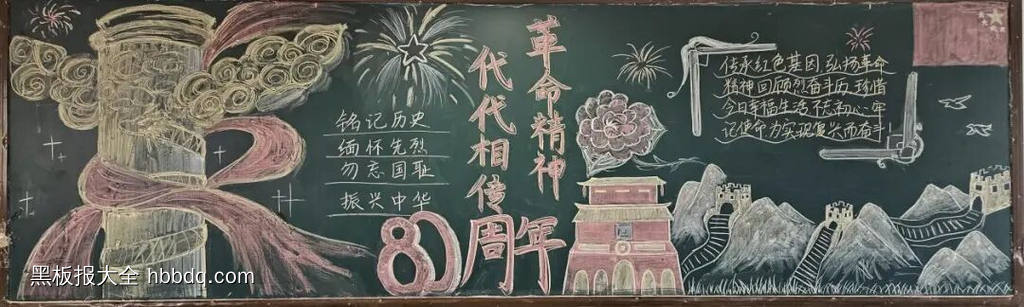 革命精神
代代相传
铭记历史
缅怀先烈
勿忘国耻
振兴中华
80周年
传承红色基因 弘扬革命
精神回顾烈奋斗历 珍惜
今日幸福生活 不忘初心牢
记使命为实现复兴而奋斗
黑板报大全 hbbdq.com